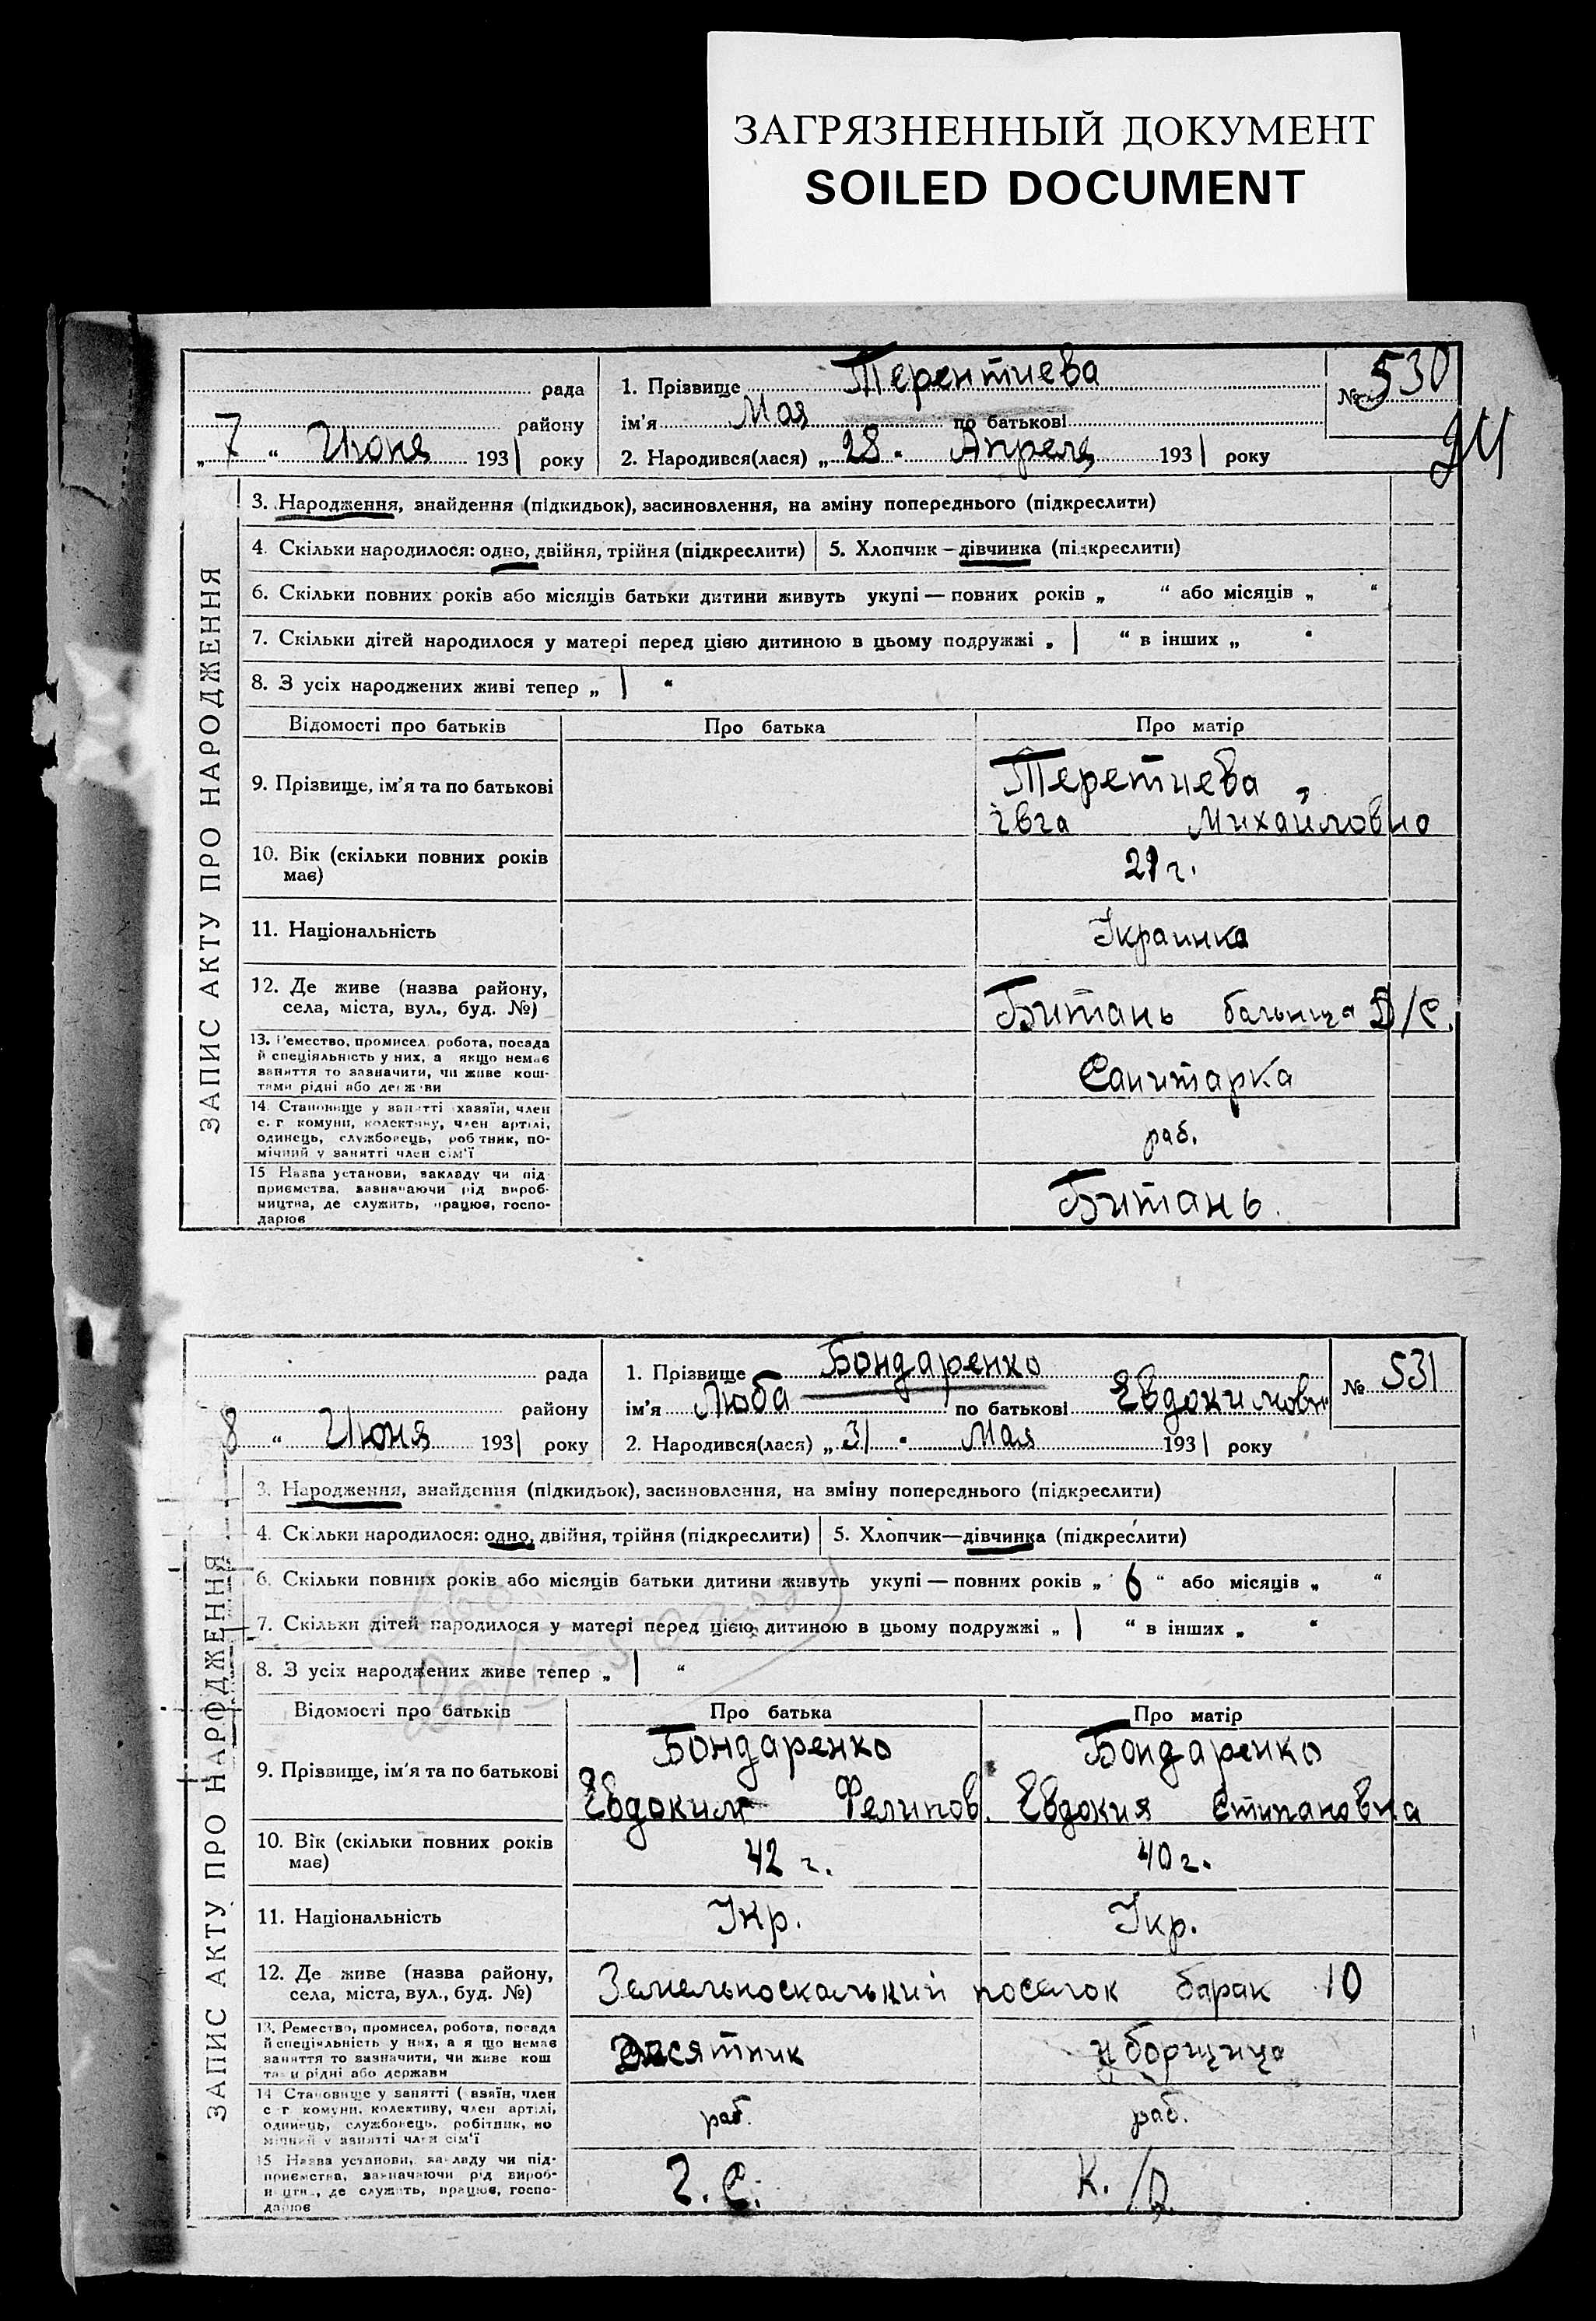 ЗАГРЯЗНЕННЫЙ ДОКУМЕНТ
SOILED DOCUMENT
рада
району
„ 7 “ Июня 1931 року
1. Прізвище Терентиева
ім’я Мая по батькові
2. Народився(лася) „ 28 “ Апреля 1931 року
№ 530
24
ЗАПИС АКТУ ПРО НАРОДЖЕННЯ
3. Народження, знайдення (підкидьок), засиновлення, на зміну попереднього (підкреслити)
4. Скільки народилося: одно, двійня, трійня (підкреслити) 5. Хлопчик – дівчинка (підкреслити)
6. Скільки повних років або місяців батьки дитини живуть укупі — повних років „ “ або місяців „ “
7. Скільки дітей народилося у матері перед цією дитиною в цьому подружжі „ 1 “ в інших „ “
8. З усіх народжених живі тепер „ 1 “
Відомості про батьків Про батька Про матір
9. Прізвище, ім’я та по батькові
Теретиева
Михайловна
10. Вік (скільки повних років має)
29 г.
11. Національність
Украинка
12. Де живе (назва району,
села, міста, вул., буд. №)
Битань бальница Д/С.
13. Ремество, промисел, робота, посада
й спеціяльність у них, а якщо немає
заняття то зазначити, чи живе кош-
тами рідні або держави
Санитарка
14. Становище у занятті хазяїн, член
с. г комуни, колективу, член артілі,
одинець, службовець, робітник, по-
мічний у занятті член сім’ї
раб.
15 Назва установи, закладу чи під-
приємства, зазначаючи рід вироб-
ництва, де служить, працює, госпо-
дарює
Битань.
рада
району
8 “ Июня 1931 року
1. Прізвище Бондаренко
ім’я Люба по батькові Евдокимовн
2. Народився(лася) „ 31 “ Мая 1931 року
№ 531
ЗАПИС АКТУ ПРО НАРОДЖЕННЯ
3. Народження, знайдення (підкидьок), засиновлення, на зміну попереднього (підкреслити)
4. Скільки народилося: одно, двійня, трійня (підкреслити) 5. Хлопчик—дівчинка (підкреслити)
6. Скільки повних років або місяців батьки дитини живуть укупі — повних років „ 6 “ або місяців „ “
7. Скільки дітей народилося у матері перед цією дитиною в цьому подружжі „ 1 “ в інших „ “
8. З усіх народжених живе тепер „ 1 “
Відомості про батьків Про батька Про матір
9. Прізвище, ім’я та по батькові
Бондаренко Бондаренко
Евдоким Фелипов. Евдокия Стипановна
10. Вік (скільки повних років має)
42 г. 40 г.
11. Національність
Укр. Укр.
12. Де живе (назва району,
села, міста, вул., буд. №)
Земельноскальний поселок барак 10
13. Ремество, промисел, робота, посада
й спеціяльність у них, а якщо немає
заняття то зазначити, чи живе кош
тами рідні або держави
Десятник уборщица
14 Становище у занятті (хазяїн, член
с г комуни, колективу, член артілі,
одинець, службовець, робітник, по
мічний у занятті член сім’ї
раб. раб.
15 Назва установи, закладу чи під-
приємства, зазначаючи рід вироб-
ництва, де служить, працює, госпо-
дарює
Г. С.